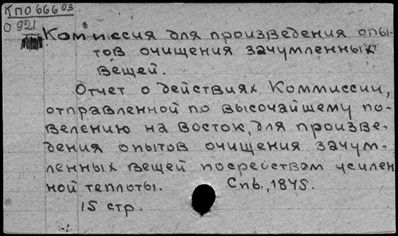 Кпо 66603
О 921.
Комиссия для произведения опы-
тов очищения зачумленных
вещей.
Отчет о действиях Коммиссии,
отправленной по высочайшему по-
велению на Восток, для произве-
дения опытов очищения зачум-
ленных вещей посредством усилен
ной теплоты. Спб., 1845.
15 стр.